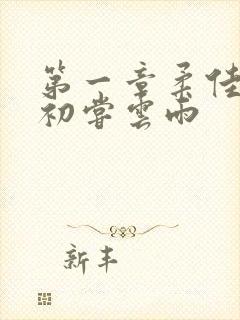 第一章柔佳
初尝雲雨
新丰